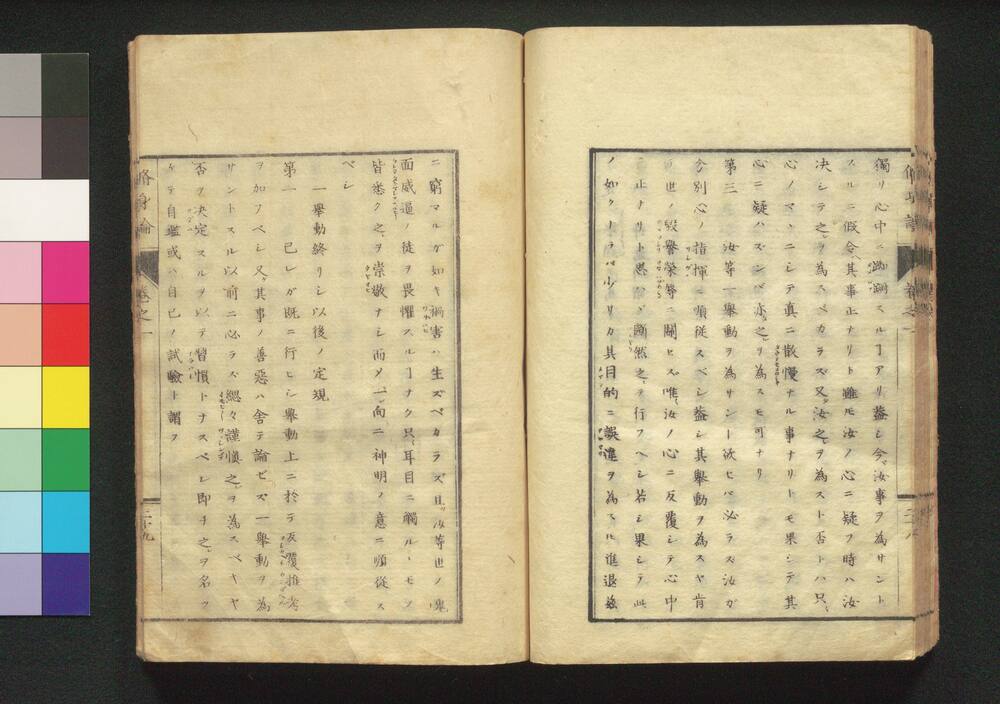 獨リ心中ニ踟蹰スルヿアリ蓋シ今汝事ヲ為サント
スルニ假令其事正ナリト雖モ汝ノ心ニ疑フ時ハ汝
决シテ之ヲ為スベカラズ又汝之ヲ為スト否トハ只
心ノマヽニシテ真ニ散慢ナル事ナリトモ果シテ其
心ニ疑ハズンバ亦之ヲ為スモ可ナリ
第三 汝等一舉動ヲ為サント欲セバ必ラズ汝ガ
分別心ノ指揮ニ順従スベシ蓋シ其舉動ヲ為スヤ肯
世ノ毀譽榮辱ニ關セズ唯汝ノ心ニ反覆シテ心中
正ナリト思ハヾ斷然之ヲ行フベシ若シ果シテ此
ノ如クナラバ少シク其目的ニ誤違ヲ為スモ進退茲
ニ窮マルガ如キ禍害ハ生ズベカラズ且汝等世ノ鬼
面威逼ノ徒ヲ畏懼スルヿナク只耳目ニ觸ルヽモノ
皆悉ク之ヲ崇敬ナシ而メ一向ニ神明ノ意ニ順從ス
ベシ
一舉動終リシ以後ノ定規
第一 已レガ既ニ行ヒシ舉動上ニ於テ反覆推考
ヲ加フベシ又其事ノ善惡ハ舍テ論ゼズ一舉動ヲ為
サントスル以前ニ心ラズ總々謹慎之ヲ為スベヤ
否ヲ决定スルヲ以テ習慣トナスベシ即チ之ヲ名ヅ
ケテ自鑑或ハ自己ノ試驗ト謂フ
脩身論
卷之一
二十九